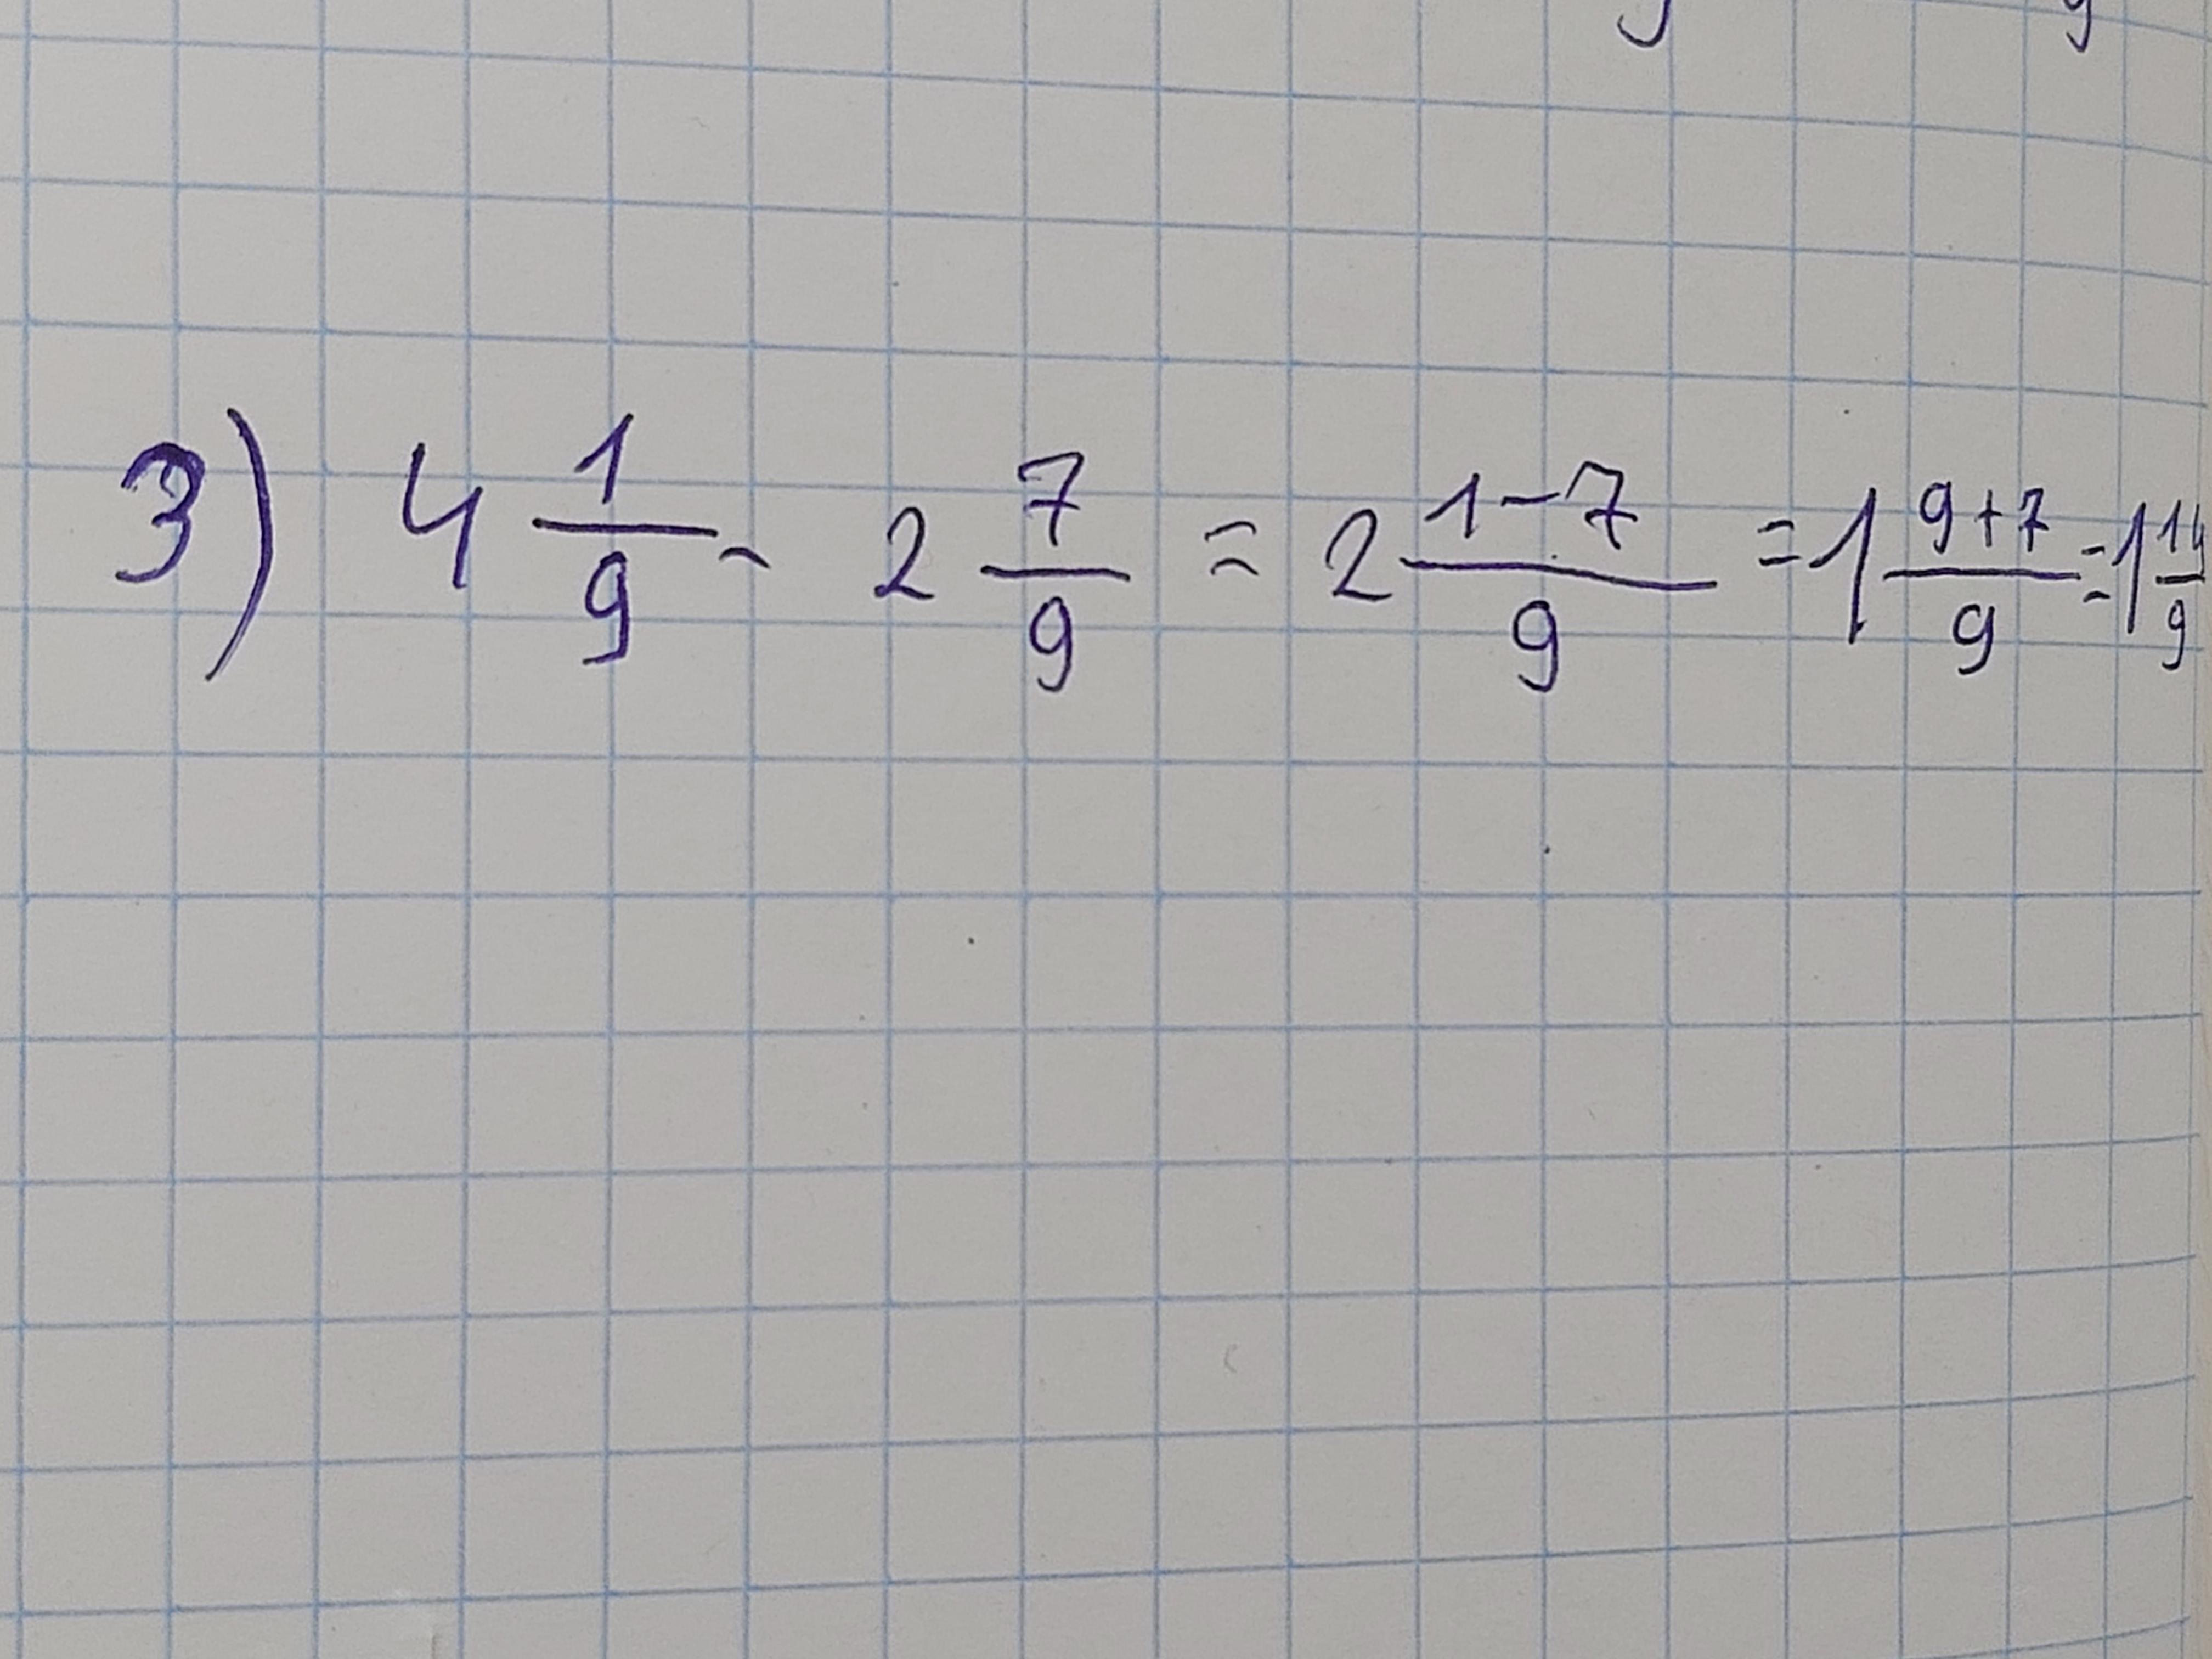 3) 4 1/9 - 2 7/9 = 2 (1-7)/9 = 1 (9+7)/9 = 1 14/9